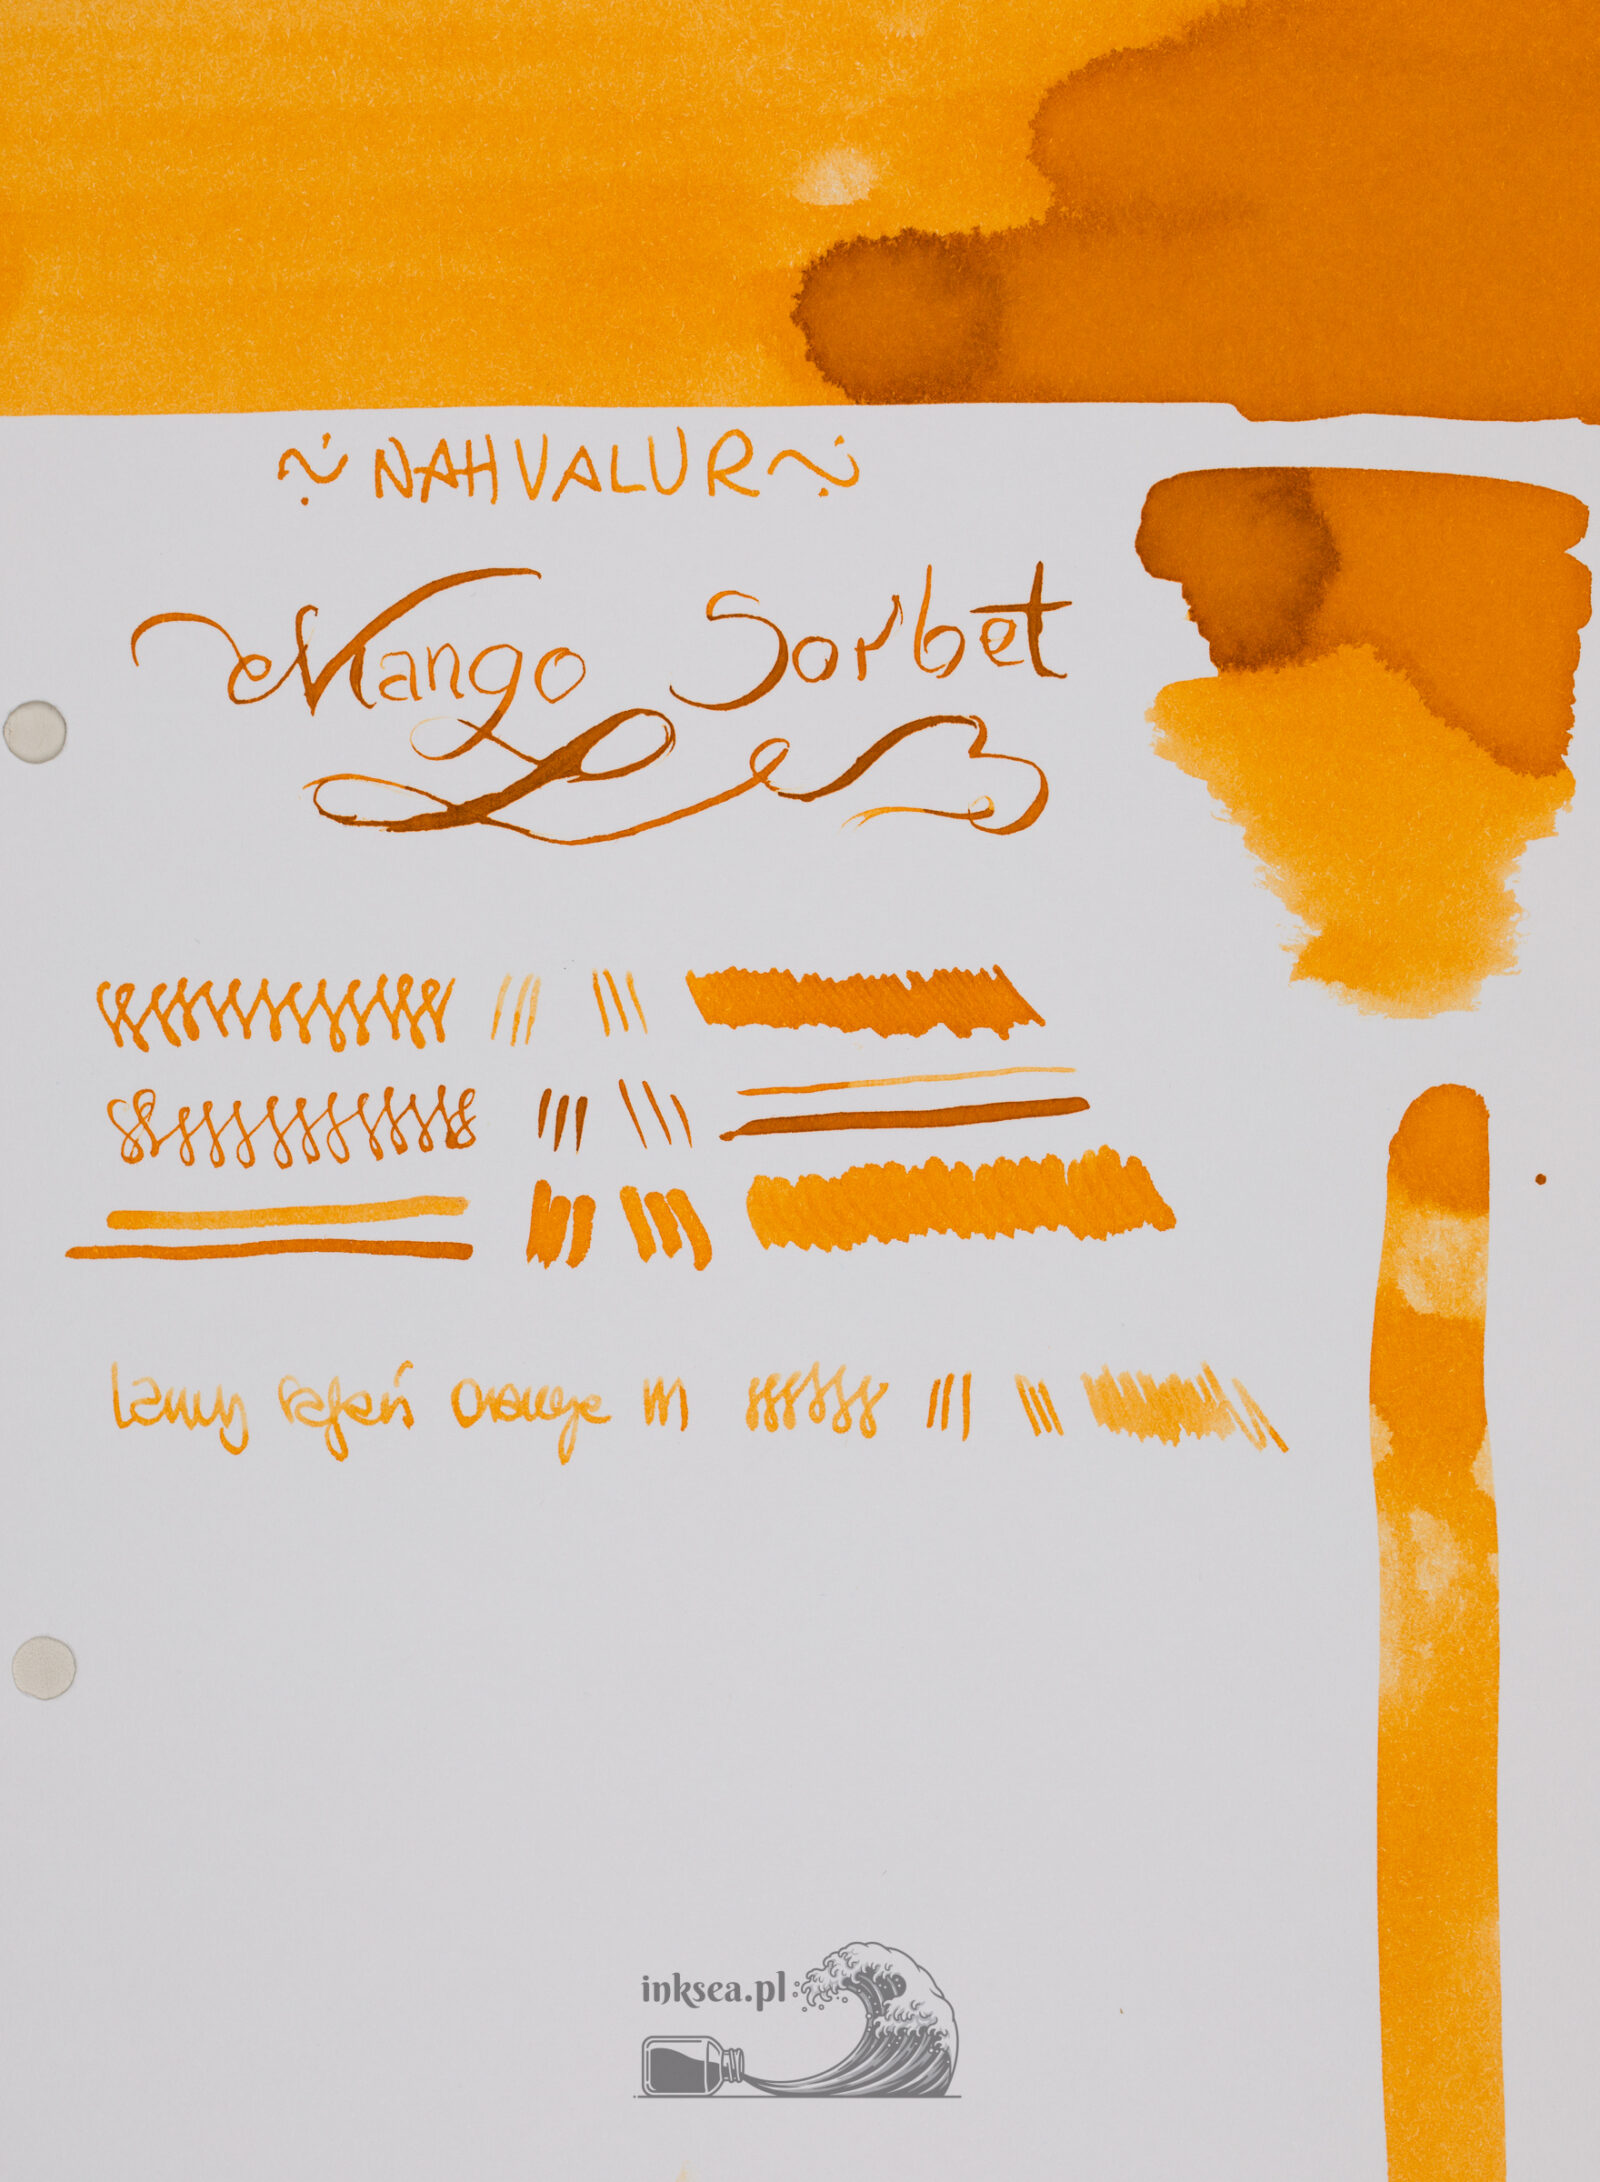 ~ NAHVALUR ~
Mango Sorbet
Lamy Safari Orange M
inksea.pl